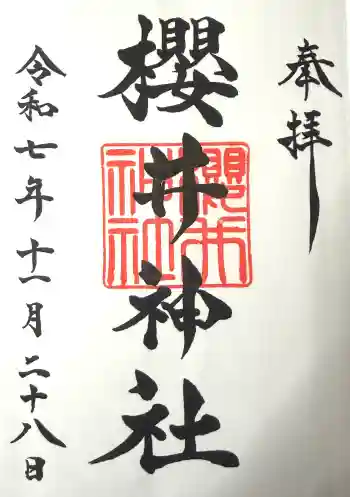 奉拝
櫻井神社
櫻井神社
令和七年十一月二十八日